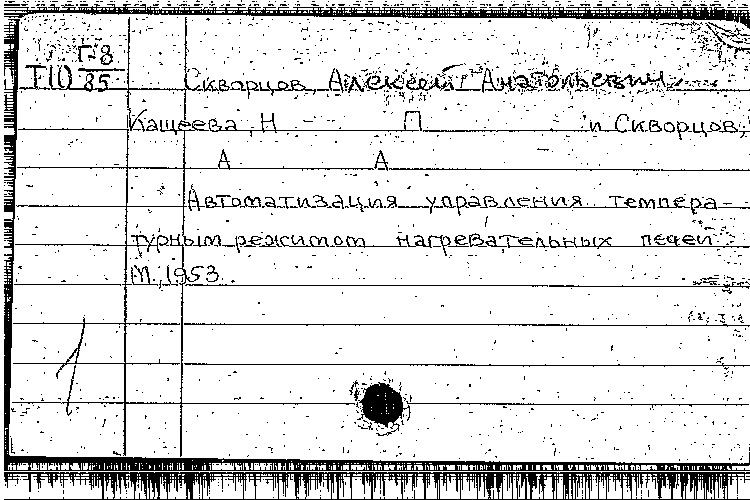 Т10 Г-8
85
Скворцов, Алексей Анатольевич
Кащеева, Н П и Скворцов,
А А
Автоматизация управления темпера-
турным режимом нагревательных печей
М., 1953.
1